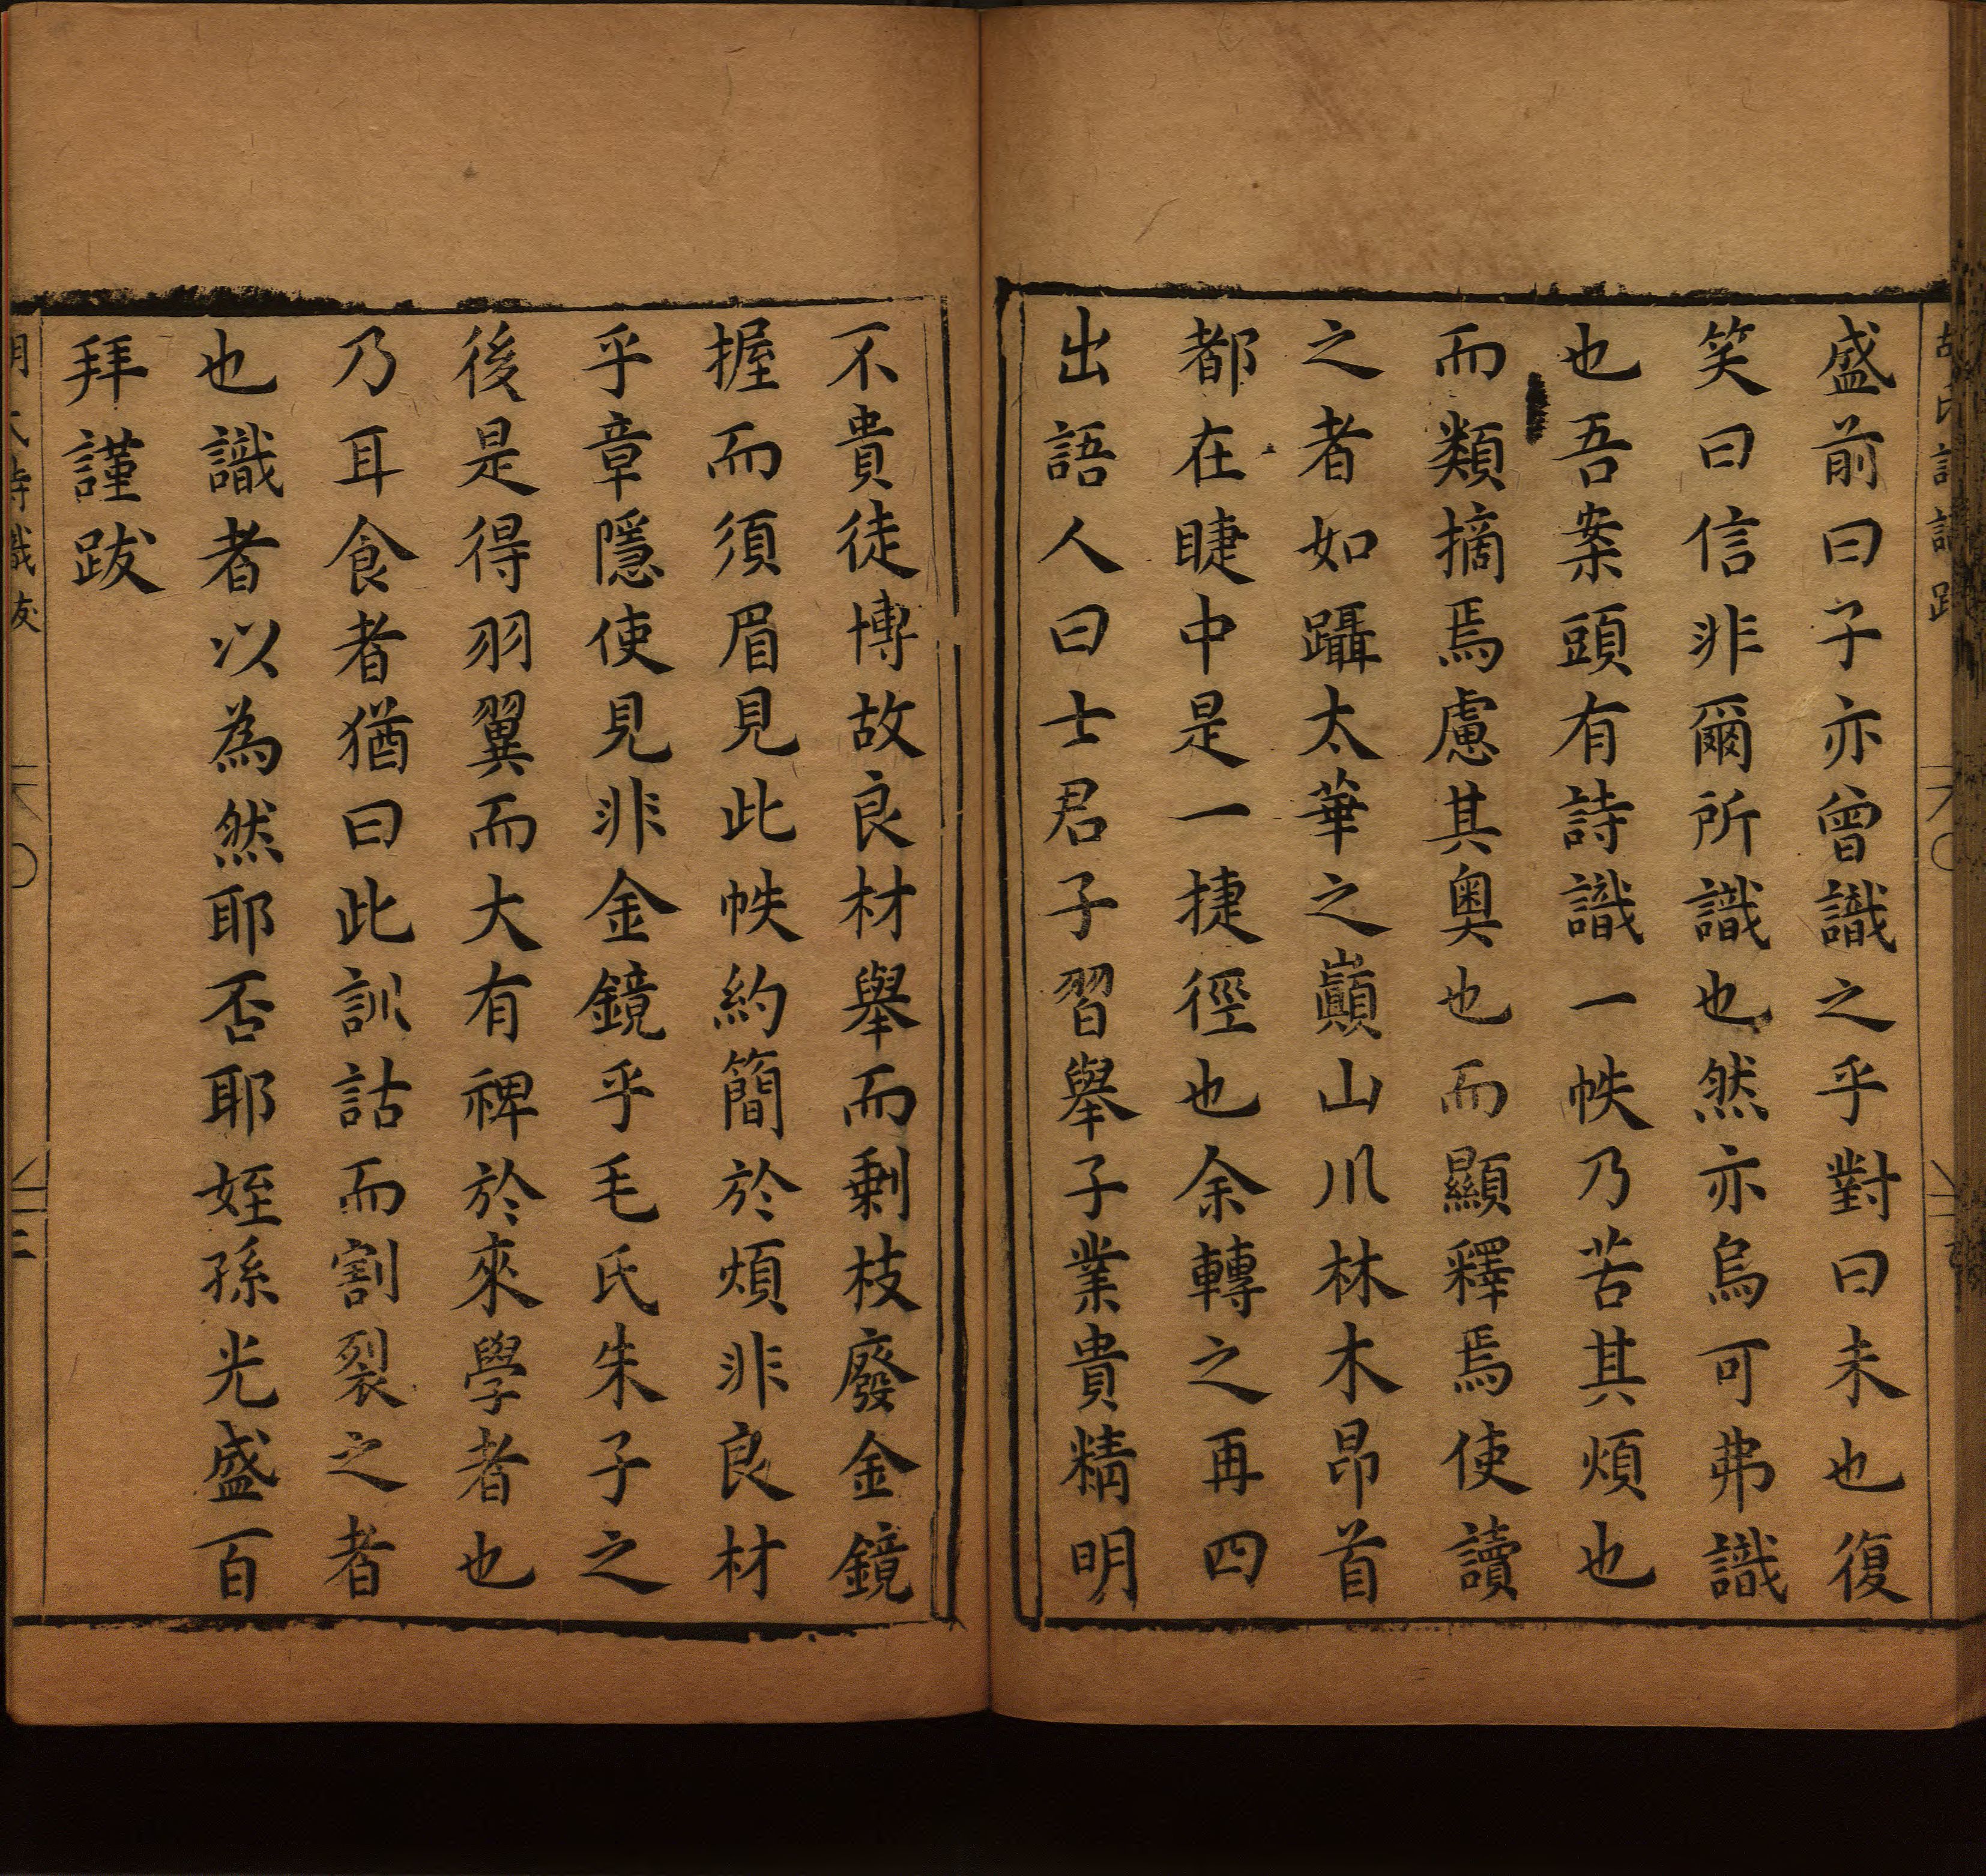 盛前曰子亦曾識之乎對曰未也復
笑曰信非爾所識也然亦烏可弗識
也吾案頭有詩識一帙乃苦其煩也
而類摘焉慮其奥也而顯釋焉使讀
之者如躡太華之巔山川林木昂首
都在睫中是一捷徑也余轉之再四
出語人曰士君子習舉子業貴精明
不貴徒博故良材舉而剩枝廢金鏡
握而須眉見此帙約簡於煩非良材
乎章隱使見非金鏡乎毛氏朱子之
後是得羽翼而大有裨於來學者也
乃耳食者猶曰此訓詁而割裂之者
也識者以為然耶否耶姪孫光盛百
拜謹跋